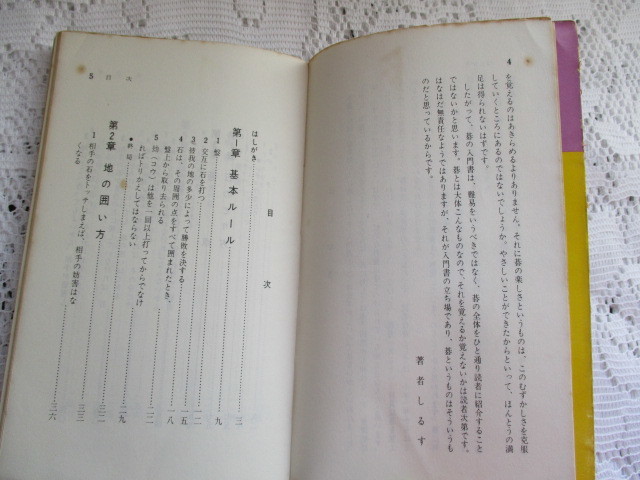 4
を覚えるのはあきらめるよりありません。それに碁の楽しさというものは、このむずかしさを克服
していくところにあるのではないでしょうか。やさしいことができたからといって、ほんとうの満
足は得られないはずです。
したがって、碁の入門書は、難易をいうべきではなく、碁の全体をひと通り読者に紹介すること
ではないかと思います。碁とは大体こんなものなので、それを覚えるか覚えないかは読者次第です。
はなはだ無責任なようではありますが、それが入門書の立ち場であり、碁というものはそういうも
のだと思っているからです。
著者しるす
目次
はしがき……三
第1章 基本ルール
1 盤……九
2 交互に石を打つ……一二
3 終局の地の多少によって勝敗を決する……一五
4 石は、その周囲の点をすべて囲まれたとき、
盤上から取り去られる……一八
5 劫（コウ）は他を一回以上打ってからでなけ
ればトリかえしてはならない……二二
●終局……二九
第2章 地の囲い方……三二
1 相手の石をトッテしまえば、相手の妨害はな
くなる……三六
5 目次